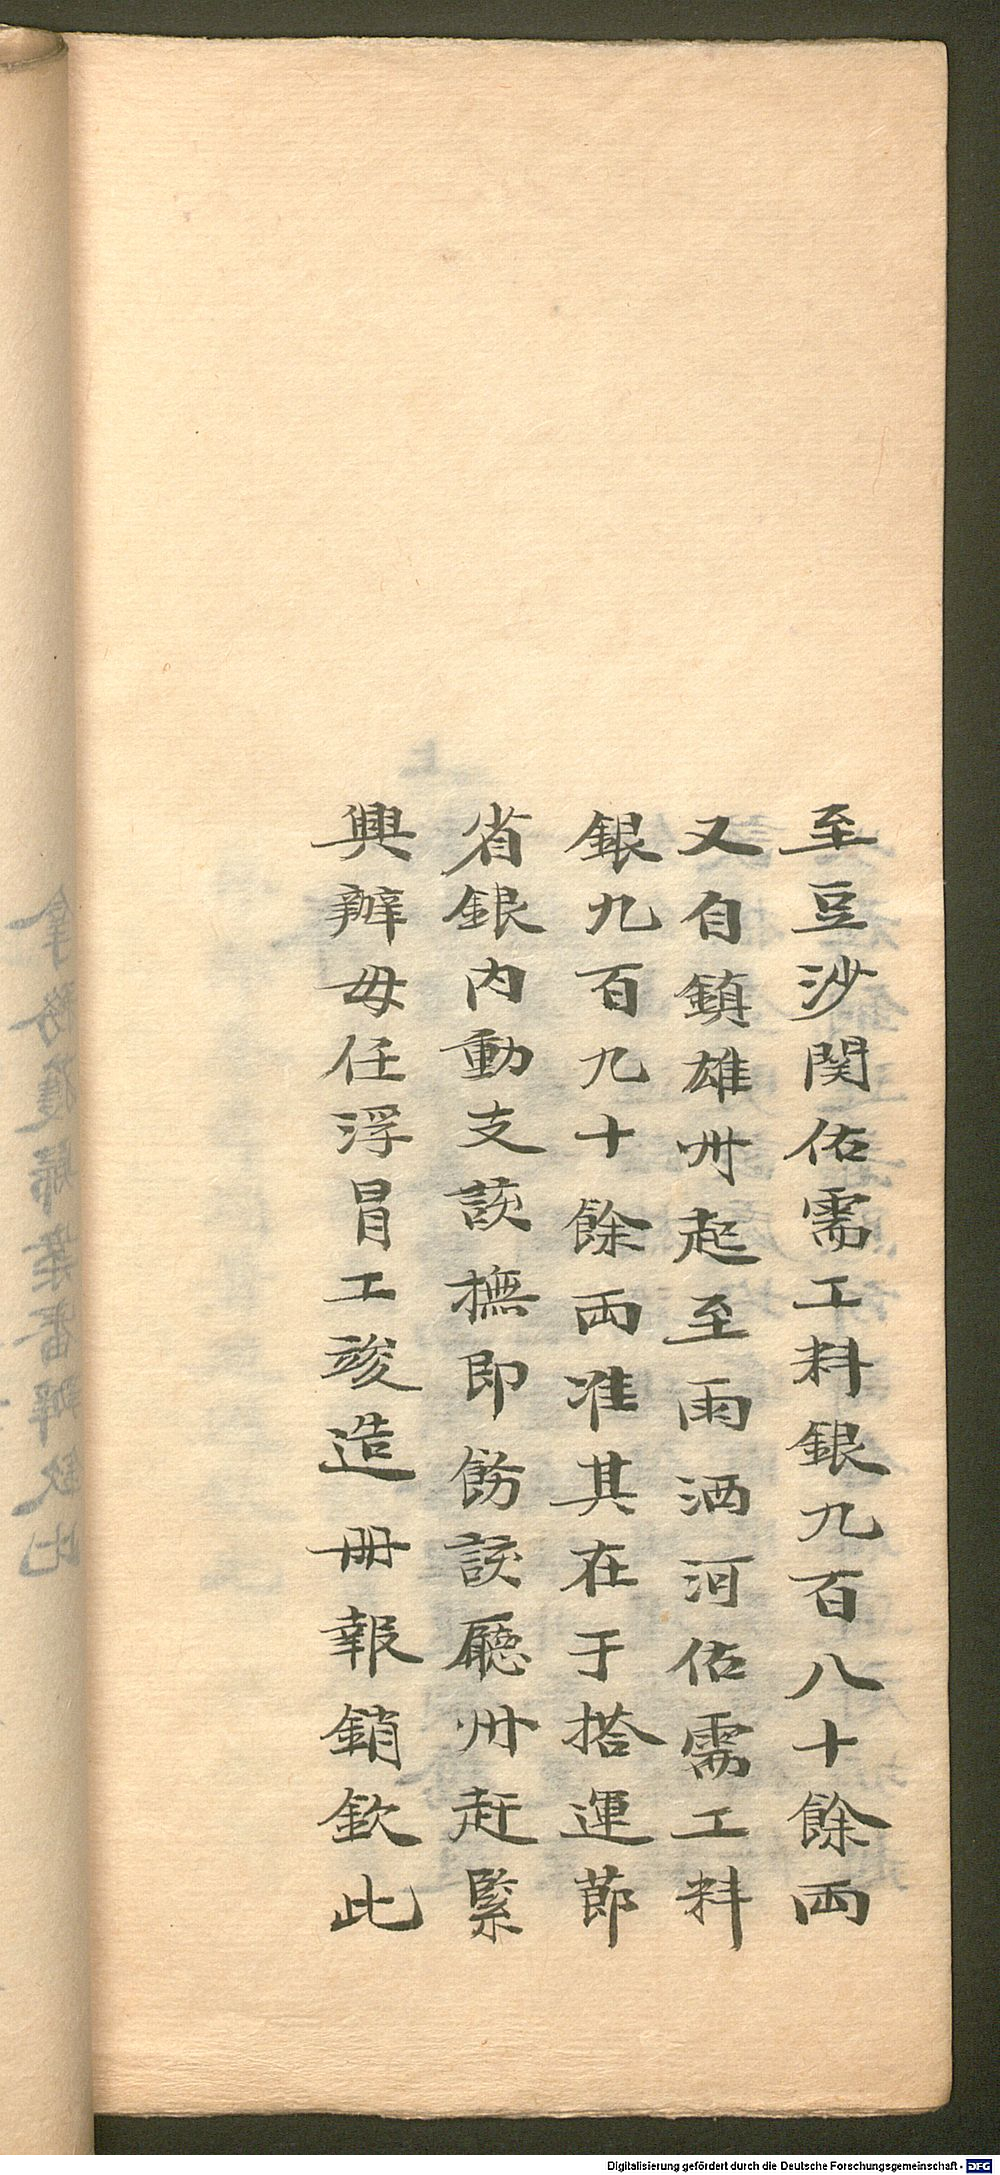 至豆沙関佑需工料銀九百八十餘両
又自鎮雄州起至雨洒河佑需工料
銀九百九十餘両准其在于搭運節
省銀内動支該撫即飭該廳州赶緊
興辦毋任浮冒工竣造冊報銷欽此
Digitalisierung gefördert durch die Deutsche Forschungsgemeinschaft - DFG